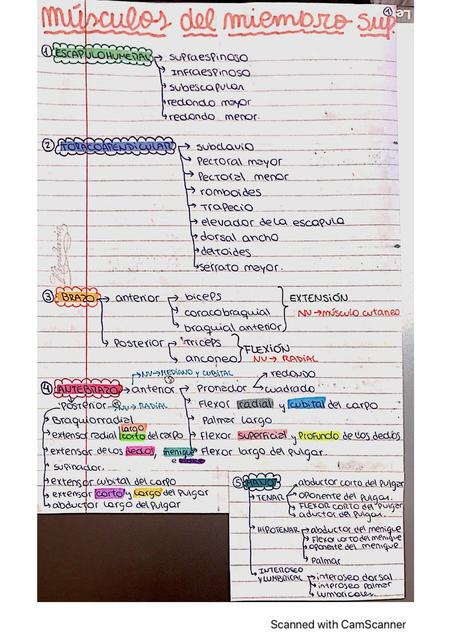 músculos del miembro sup.
①
① ESCAPULOHUMERAL → supraespinoso
→ Infraespinoso
→ subescapular
→ redondo mayor
→ redondo menor.
② TORACOAPENDICULAR → subclavio
→ Pectoral mayor
→ Pectoral menor
→ romboides
→ Trapecio
→ elevador de la escapula
→ dorsal ancho
→ deltoides
→ serrato mayor.
③ BRAZO → anterior → biceps
→ coracobraquial
→ braquial anterior
EXTENSIÓN
NV → músculo cutaneo
→ Posterior → Triceps
→ anconeo
FLEXIÓN
NV → RADIAL
④ ANTEBRAZO → anterior → Pronador → redondo
→ cuadrado
→ NV → MEDIANO Y CUBITAL
→ Flexor radial y cubital del carpo
→ Palmar largo
→ Flexor superficial y profundo de los dedos
→ Flexor largo del pulgar.
Posterior → NV → RADIAL
→ Braquiorradial
→ extensor radial largo corto del carpo
→ extensor de los dedos, meñique e
→ supinador.
→ extensor cubital del carpo
→ extensor corto y largo del pulgar
→ abductor largo del pulgar
⑤ MANO
→ TENAR → abductor corto del pulgar
→ oponente del pulgar.
→ FLEXOR CORTO del pulgar
→ aductor del pulgar.
→ HIPOTENAR → abductor del meñique
→ Flexor corto del meñique
→ oponente del meñique
→ Palmar
→ INTEROSEO Y LUMBRICAL → interoseo dorsal
→ interoseo palmar
→ lumbricales.
Scanned with CamScanner